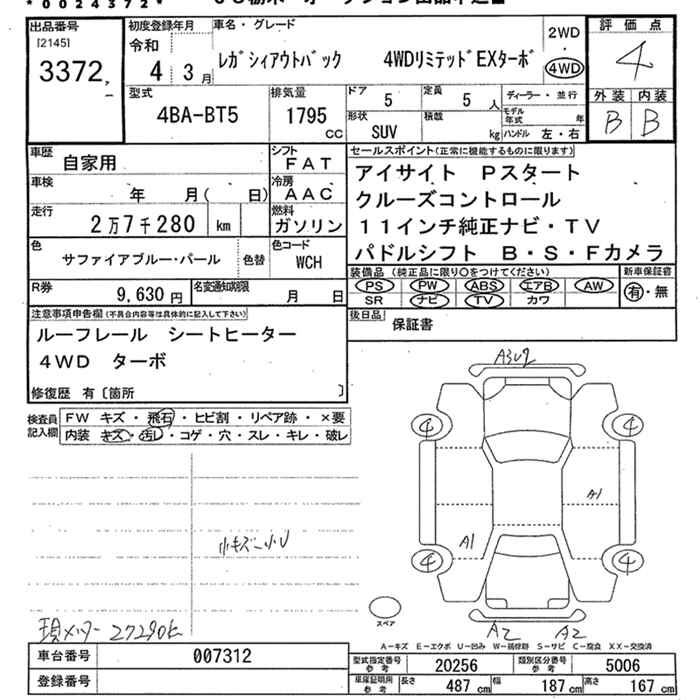 *0024372*
出品番号
[2145]
3372
初度登録年月
令和
4 3月
車名・グレード
レガシィアウトバック 4WDリミテッドEXターボ
2WD
4WD
評価点
4
外装 内装
B B
型式
4BA-BT5
排気量
1795 CC
ドア 5
定員 5 人
形状 SUV
積載 kg
ディーラー・並行
モデル年式 年
ハンドル 左・右
車歴 自家用
シフト FAT
車検 年 月( 日)
冷房 AAC
走行 2万7千280 km
燃料 ガソリン
色 サファイアブルー・パール
色替
色コード WCH
R券 9,630円
名変通知期限 月 日
セールスポイント(正常に機能するものに限ります)
アイサイト Pスタート
クルーズコントロール
11インチ純正ナビ・TV
パドルシフト B・S・Fカメラ
装備品(純正品に限り○をつけてください)
新車保証書
PS PW ABS エアB AW
SR ナビ TV カワ
有・無
後日品 保証書
注意事項申告欄(不具合内容等は具体的に記入して下さい)
ルーフレール シートヒーター
4WD ターボ
修復歴 有〔箇所 〕
検査員記入欄
FW キズ・飛石・ヒビ割・リペア跡・×要
内装 キズ・汚レ・コゲ・穴・スレ・キレ・破レ
小キズ小U
現メーター 27290k
A3U2
4 4
A1
A1
4 4
スペア
A2 A2
A-キズ E-エクボ U-凹み W-補修跡 S-サビ C-腐食 XX-交換済
車台番号 007312
登録番号
型式指定番号参考 20256
類別区分番号参考 5006
車庫証明用参考 長さ 487cm 幅 187cm 高さ 167cm